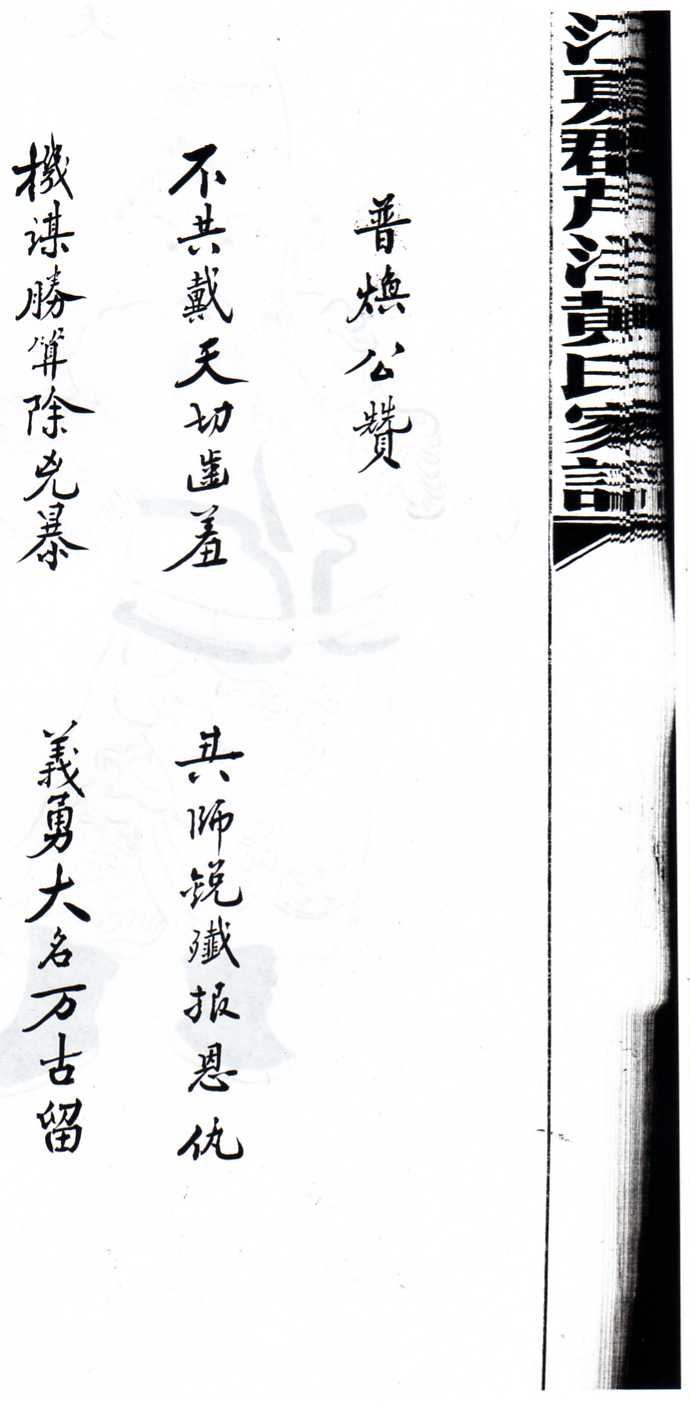 江夏郡芦江黄氏家譜
普煥公贊
不共戴天切齒羞
共師銳殲报恩仇
機謀勝算除兇暴
義勇大名万古留